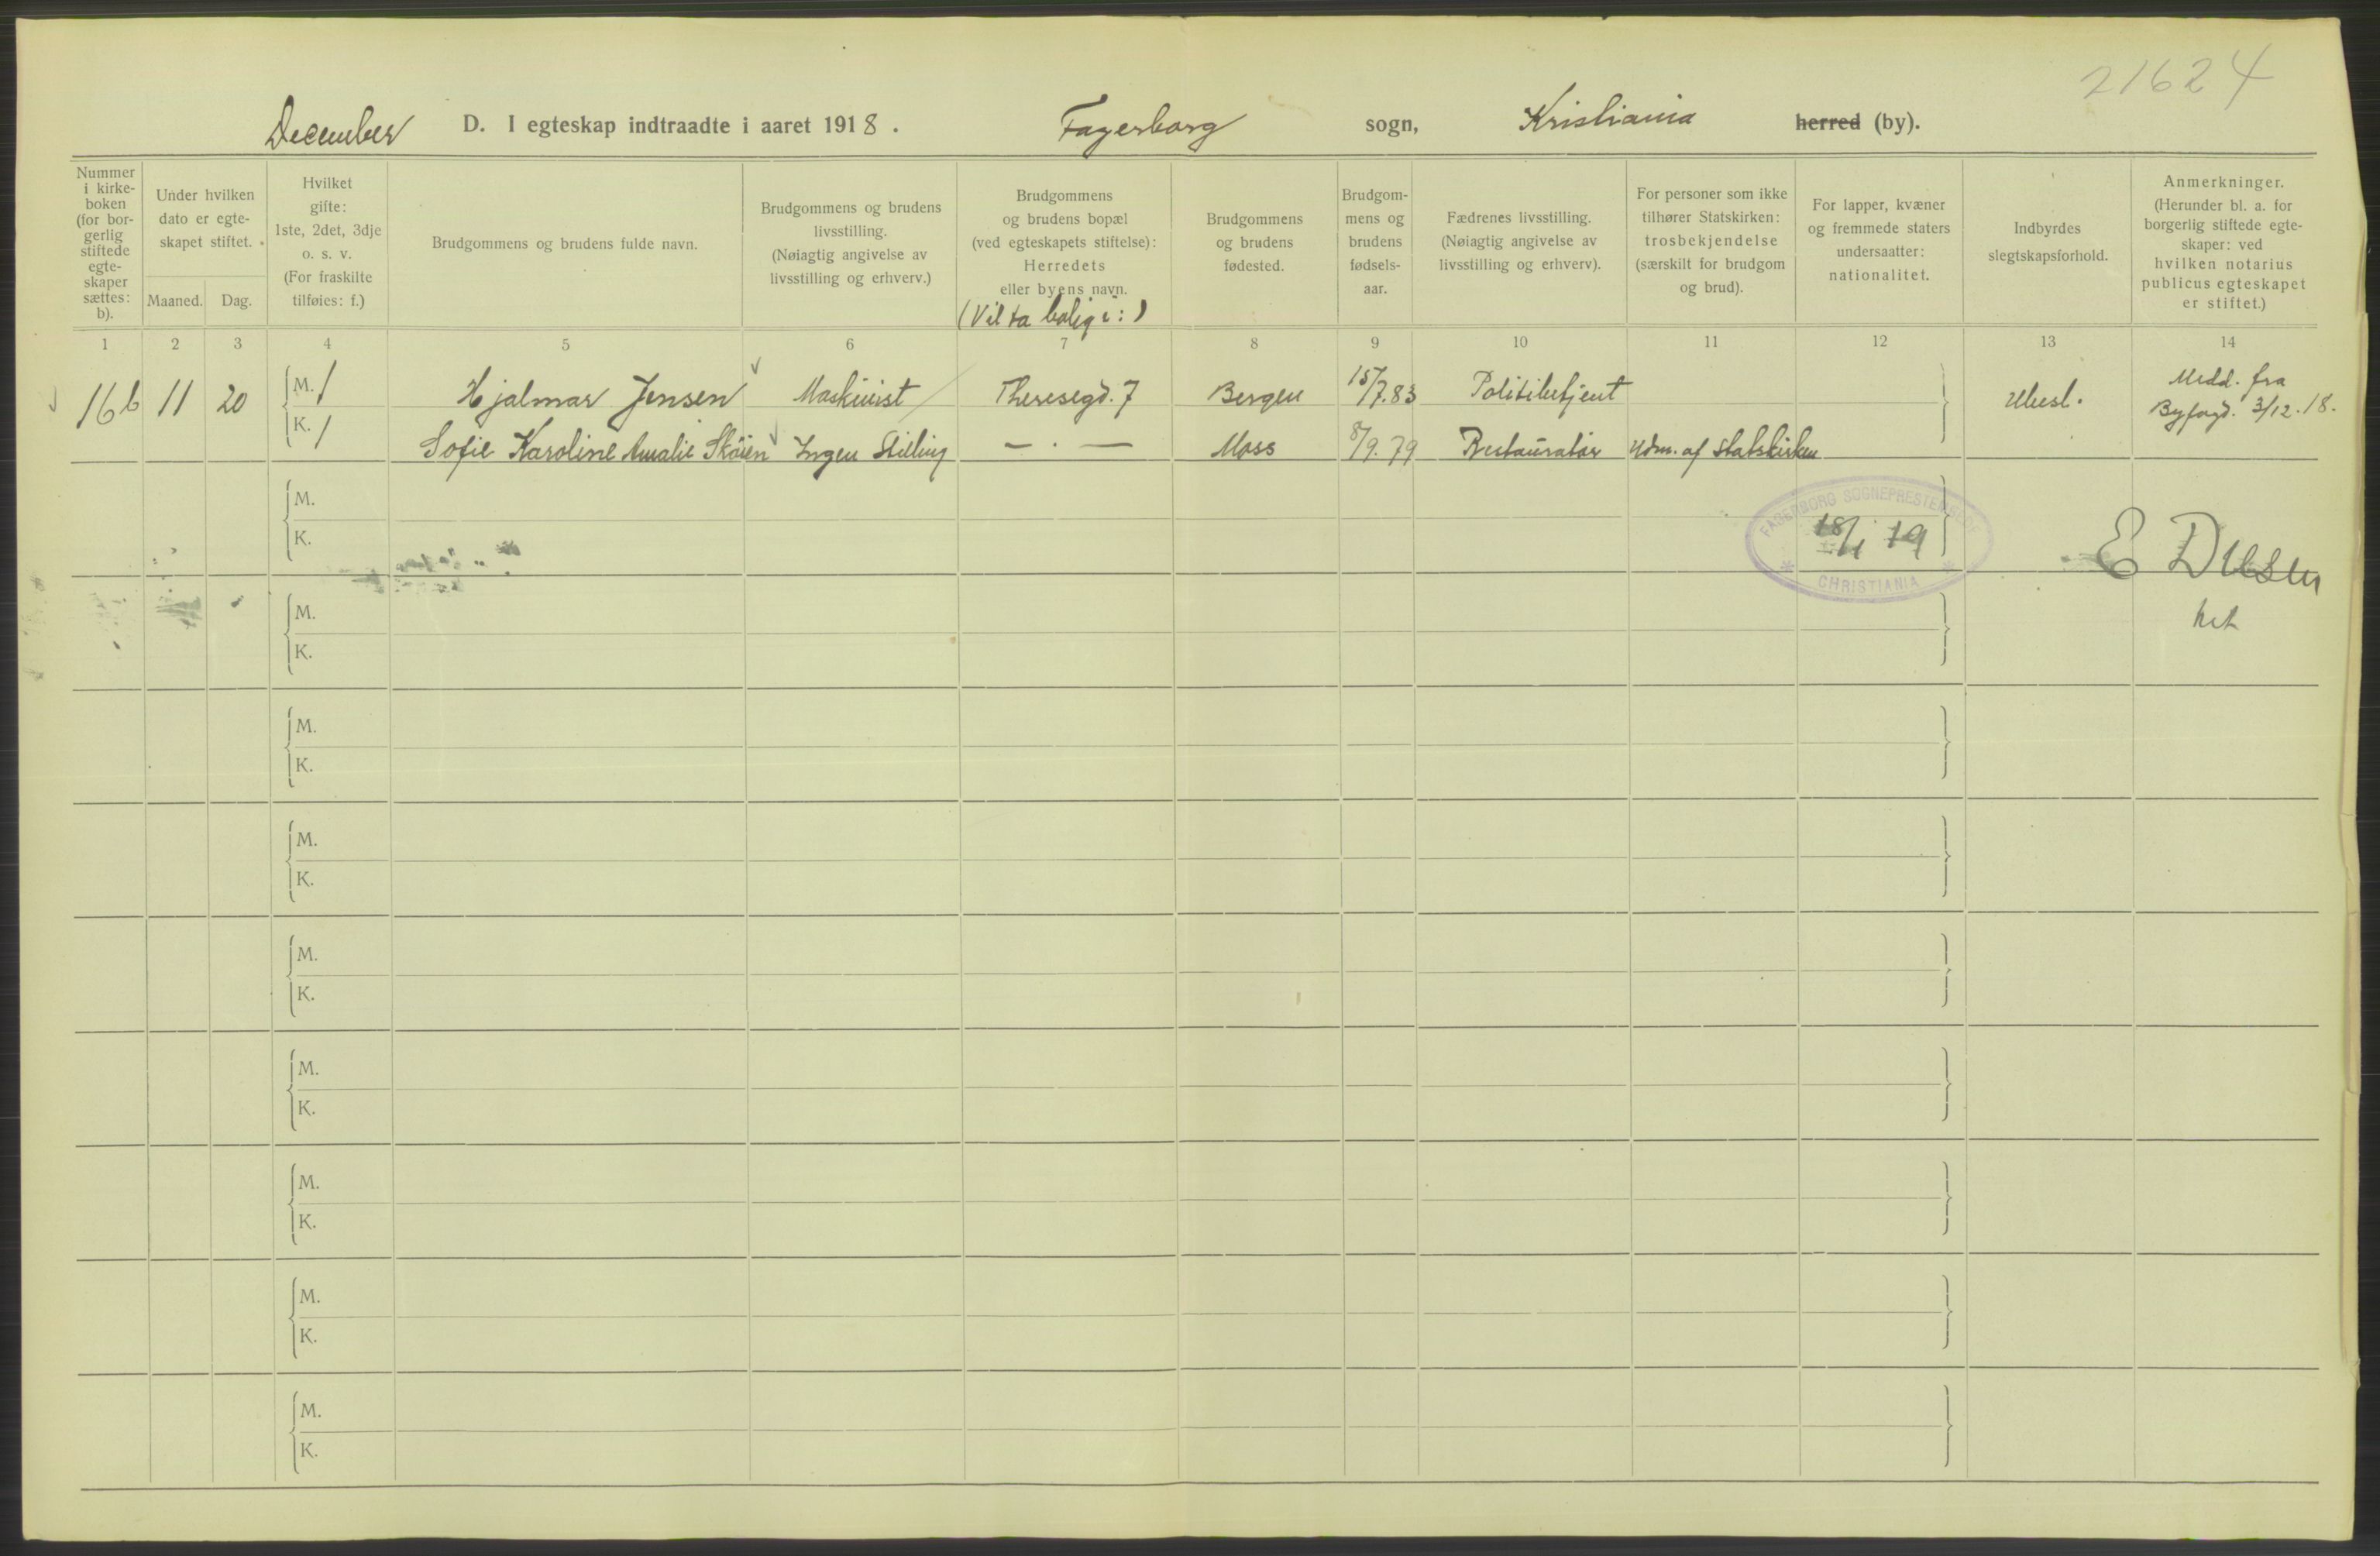 21624
December D. I egteskap indtraadte i aaret 1918. Fagerborg sogn, Kristiania herred (by).
Nummer
i kirke-
boken
(for bor-
gerlig
stiftede
egte-
skaper
sættes:
b).
Under hvilken
dato er egte-
skapet stiftet.
Maaned. Dag.
Hvilket
gifte:
1ste, 2det, 3dje
o. s. v.
(For fraskilte
tilføies: f.)
Brudgommens og brudens fulde navn.
Brudgommens og brudens
livsstilling.
(Nøiagtig angivelse av
livsstilling og erhverv.)
Brudgommens
og brudens bopæl
(ved egteskapets stiftelse):
Herredets
eller byens navn.
(Vil ta bolig i:)
Brudgommens
og brudens
fødested.
Brudgom-
mens og
brudens
fødsels-
aar.
Fædrenes livsstilling.
(Nøiagtig angivelse av
livsstilling og erhverv).
For personer som ikke
tilhører Statskirken:
trosbekjendelse
(særskilt for brudgom
og brud).
For lapper, kvæner
og fremmede staters
undersaatter:
nationalitet.
Indbyrdes
slegtskapsforhold.
Anmerkninger.
(Herunder bl. a. for
borgerlig stiftede egte-
skaper: ved
hvilken notarius
publicus egteskapet
er stiftet.)
1 2 3 4 5 6 7 8 9 10 11 12 13 14
16b 11 20 M. 1 Hjalmar Jensen Maskinist Theresegd. 7 Bergen 15/7.83 Politibetjent Ubesl. Medd. fra
Byfogd. 3/12.18.
K. 1 Sofie Karoline Amalie Skøien Ingen Stilling — . — Moss 8/9.79 Restauratør Udm. af Statskirken
M.
K.
FAGERBORG SOGNEPRESTEMBEDE
18/1 19
* CHRISTIANIA *
E Diesen
M.
K.
M.
K.
M.
K.
M.
K.
M.
K.
M.
K.
M.
K.
M.
K.